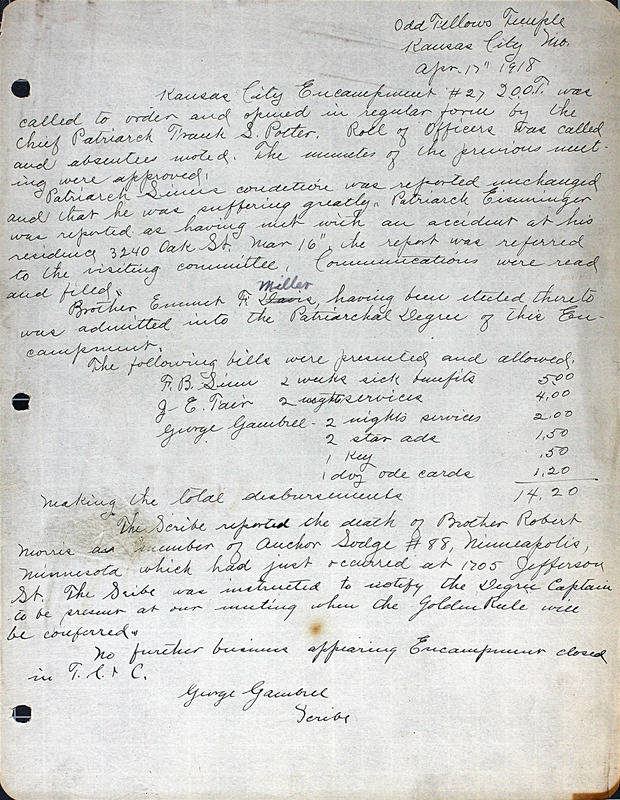 Odd Fellows Temple
Kansas City Mo.
Apr. 17" 1918
Kansas City Encampment #27 I.O.O.F. was
called to order and opened in regular form by the
Chief Patriarch Frank S. Potter. Roll of Officers was called
and absentees noted. The minutes of the previous meet-
ing were approved.
Patriarch Sinn's condition was reported unchanged
and that he was suffering greatly. Patriarch Eisminger
was reported as having met with an accident at his
residence 3240 Oak St. Mar 16", the report was referred
to the visiting committee. Communications were read
and filed.
Miller
Brother Emmet F. Davis, having been elected thereto
was admitted into the Patriarchal Degree of this En-
campment.
The following bills were presented and allowed.
F. B. Sinn 2 weeks sick benefits 5.00
J. E. Fair 2 nights services 4.00
George Gambrel - 2 nights services 2.00
2 star ads 1.50
1 Key .50
1 doz ode cards 1.20
Making the total disbursements 14.20
The Scribe reported the death of Brother Robert
Morris an member of Anchor Lodge #88, Minneapolis,
Minnesota, which had just occurred at 1705 Jefferson
St. The Scribe was instructed to notify the Degree Captain
to be present at our meeting when the Golden Rule will
be conferred.
No further business appearing Encampment closed
in F. C. & C.
George Gambrel
Scribe